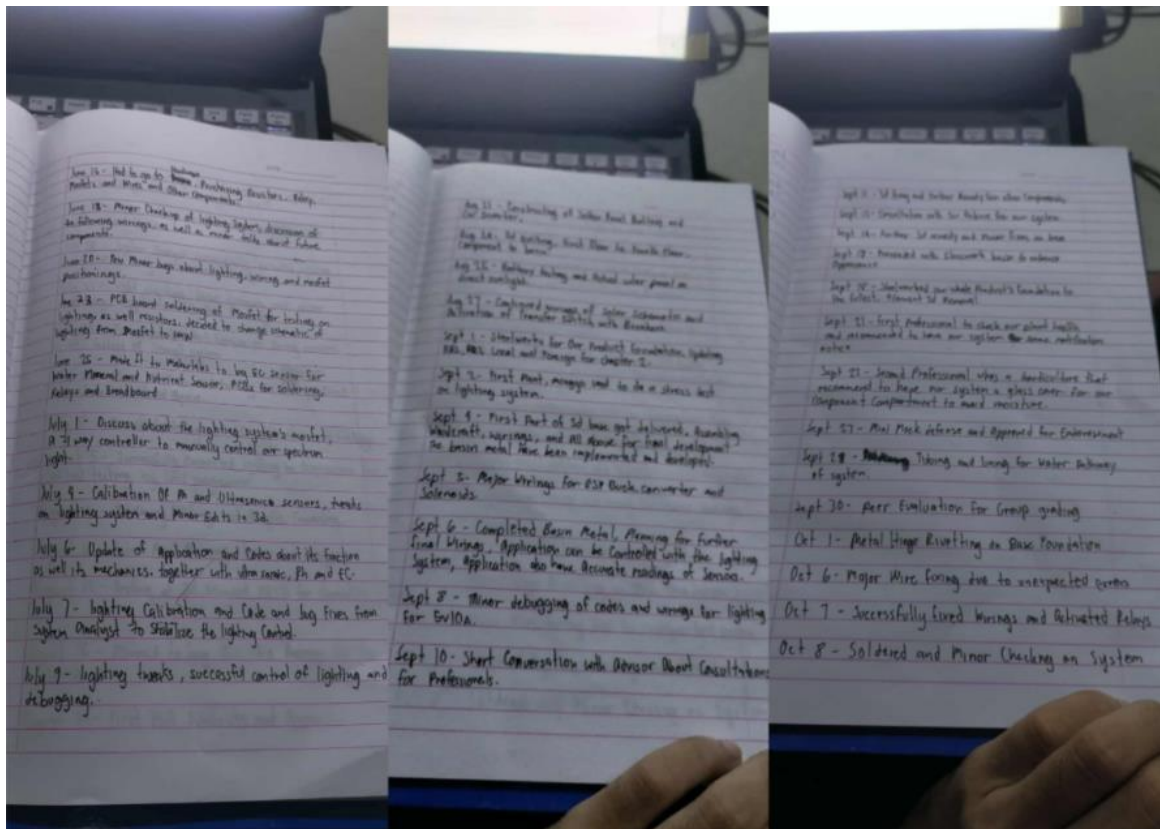 June 16 - Had to go to Purchasing Resistors, Relay,
Mosfets and Wires and Other Components.
June 18 - Minor Checking of lighting System, discussion of
following wirings, as well as minor talks about future
components.
June 20 - Few Minor bugs about lighting, wiring and mosfet
positionings.
June 23 - PCB board soldering of Mosfet for testing on
lightings as well resistors, decided to change schematic of
lighting from Mosfet to
June 25 - Made it to Makerlab to buy EC sensor for
Water Mineral and Nutrient Sensor, PCBs for soldering,
Relays and Breadboard
July 1 - Discuss about the lighting system's mosfet,
a way controller to manually control our spectrum
light.
July 4 - Calibration Of Ph and Ultrasonic sensors, tweaks
on lighting system and Minor Edits in 3d.
July 6 - Update of Application and Codes about its function
as well its mechanics, together with ultrasonic, Ph and EC.
July 7 - lighting Calibration and Code and bug fixes from
System Analyst to Stabilize the lighting Control.
July 9 - lighting tweaks, successful control of lighting and
debugging.
Aug 21 - Constructing of Solar Panel Building and
3d Printing, First Floor to Fourth Floor,
Component to basin
Aug 25 - Battery testing and Actual solar panel on
direct sunlight.
Aug 27 - Configured wirings of Solar Schematic and
Activation of Transfer Switch with Breakers
Sept 1 - Steelworks for Our Product Foundation, Updating
Local and Foreign for Chapter 2.
Sept 2 - First Plant, used to do a stress test
on lighting system.
Sept 4 - First Part of 3d base got delivered, Assembling
Woodcraft, wirings, and All above for final development
the basin metal have been implemented and developed.
Sept 5 - Major Wirings for ESP Buck converter and
Solenoids.
Sept 6 - Completed Basin Metal, Planning for further
final Wirings, Application can be Controlled with the lighting
System, Application also have Accurate readings of Sensors.
Sept 8 - Minor debugging of codes and wirings for lighting
for
Sept 10 - Short Conversation with Advisor About Consultations
for Professionals.
Sept 11 - 3d
Sept - Consultation with Sir for our system
Sept 14 - Further 3d assembly and Minor Fixes on base
Sept 17 - Proceeded with basin to enhance
Appearance
Sept - Steelworked our whole Product's Foundation to
3d Material
Sept 21 - First Professional to check our plant health
and recommended to have our system some notification
notice
Sept 22 - Second Professional who's a horticulture that
recommend to have our system a glass cover for our
Component Compartment to avoid moisture.
Sept 27 - Mini Mock defense and Approval for Endorsement
Sept 28 - Tubing and lining for Water Pathway
of system.
Sept 30 - Peer Evaluation for Group grading
Oct 1 - Metal Hinge Rivetting on Base Foundation
Oct 6 - Major Wire fixing due to unexpected
Oct 7 - Successfully fixed Wirings and Activated Relays
Oct 8 - Soldered and Minor Checking on System